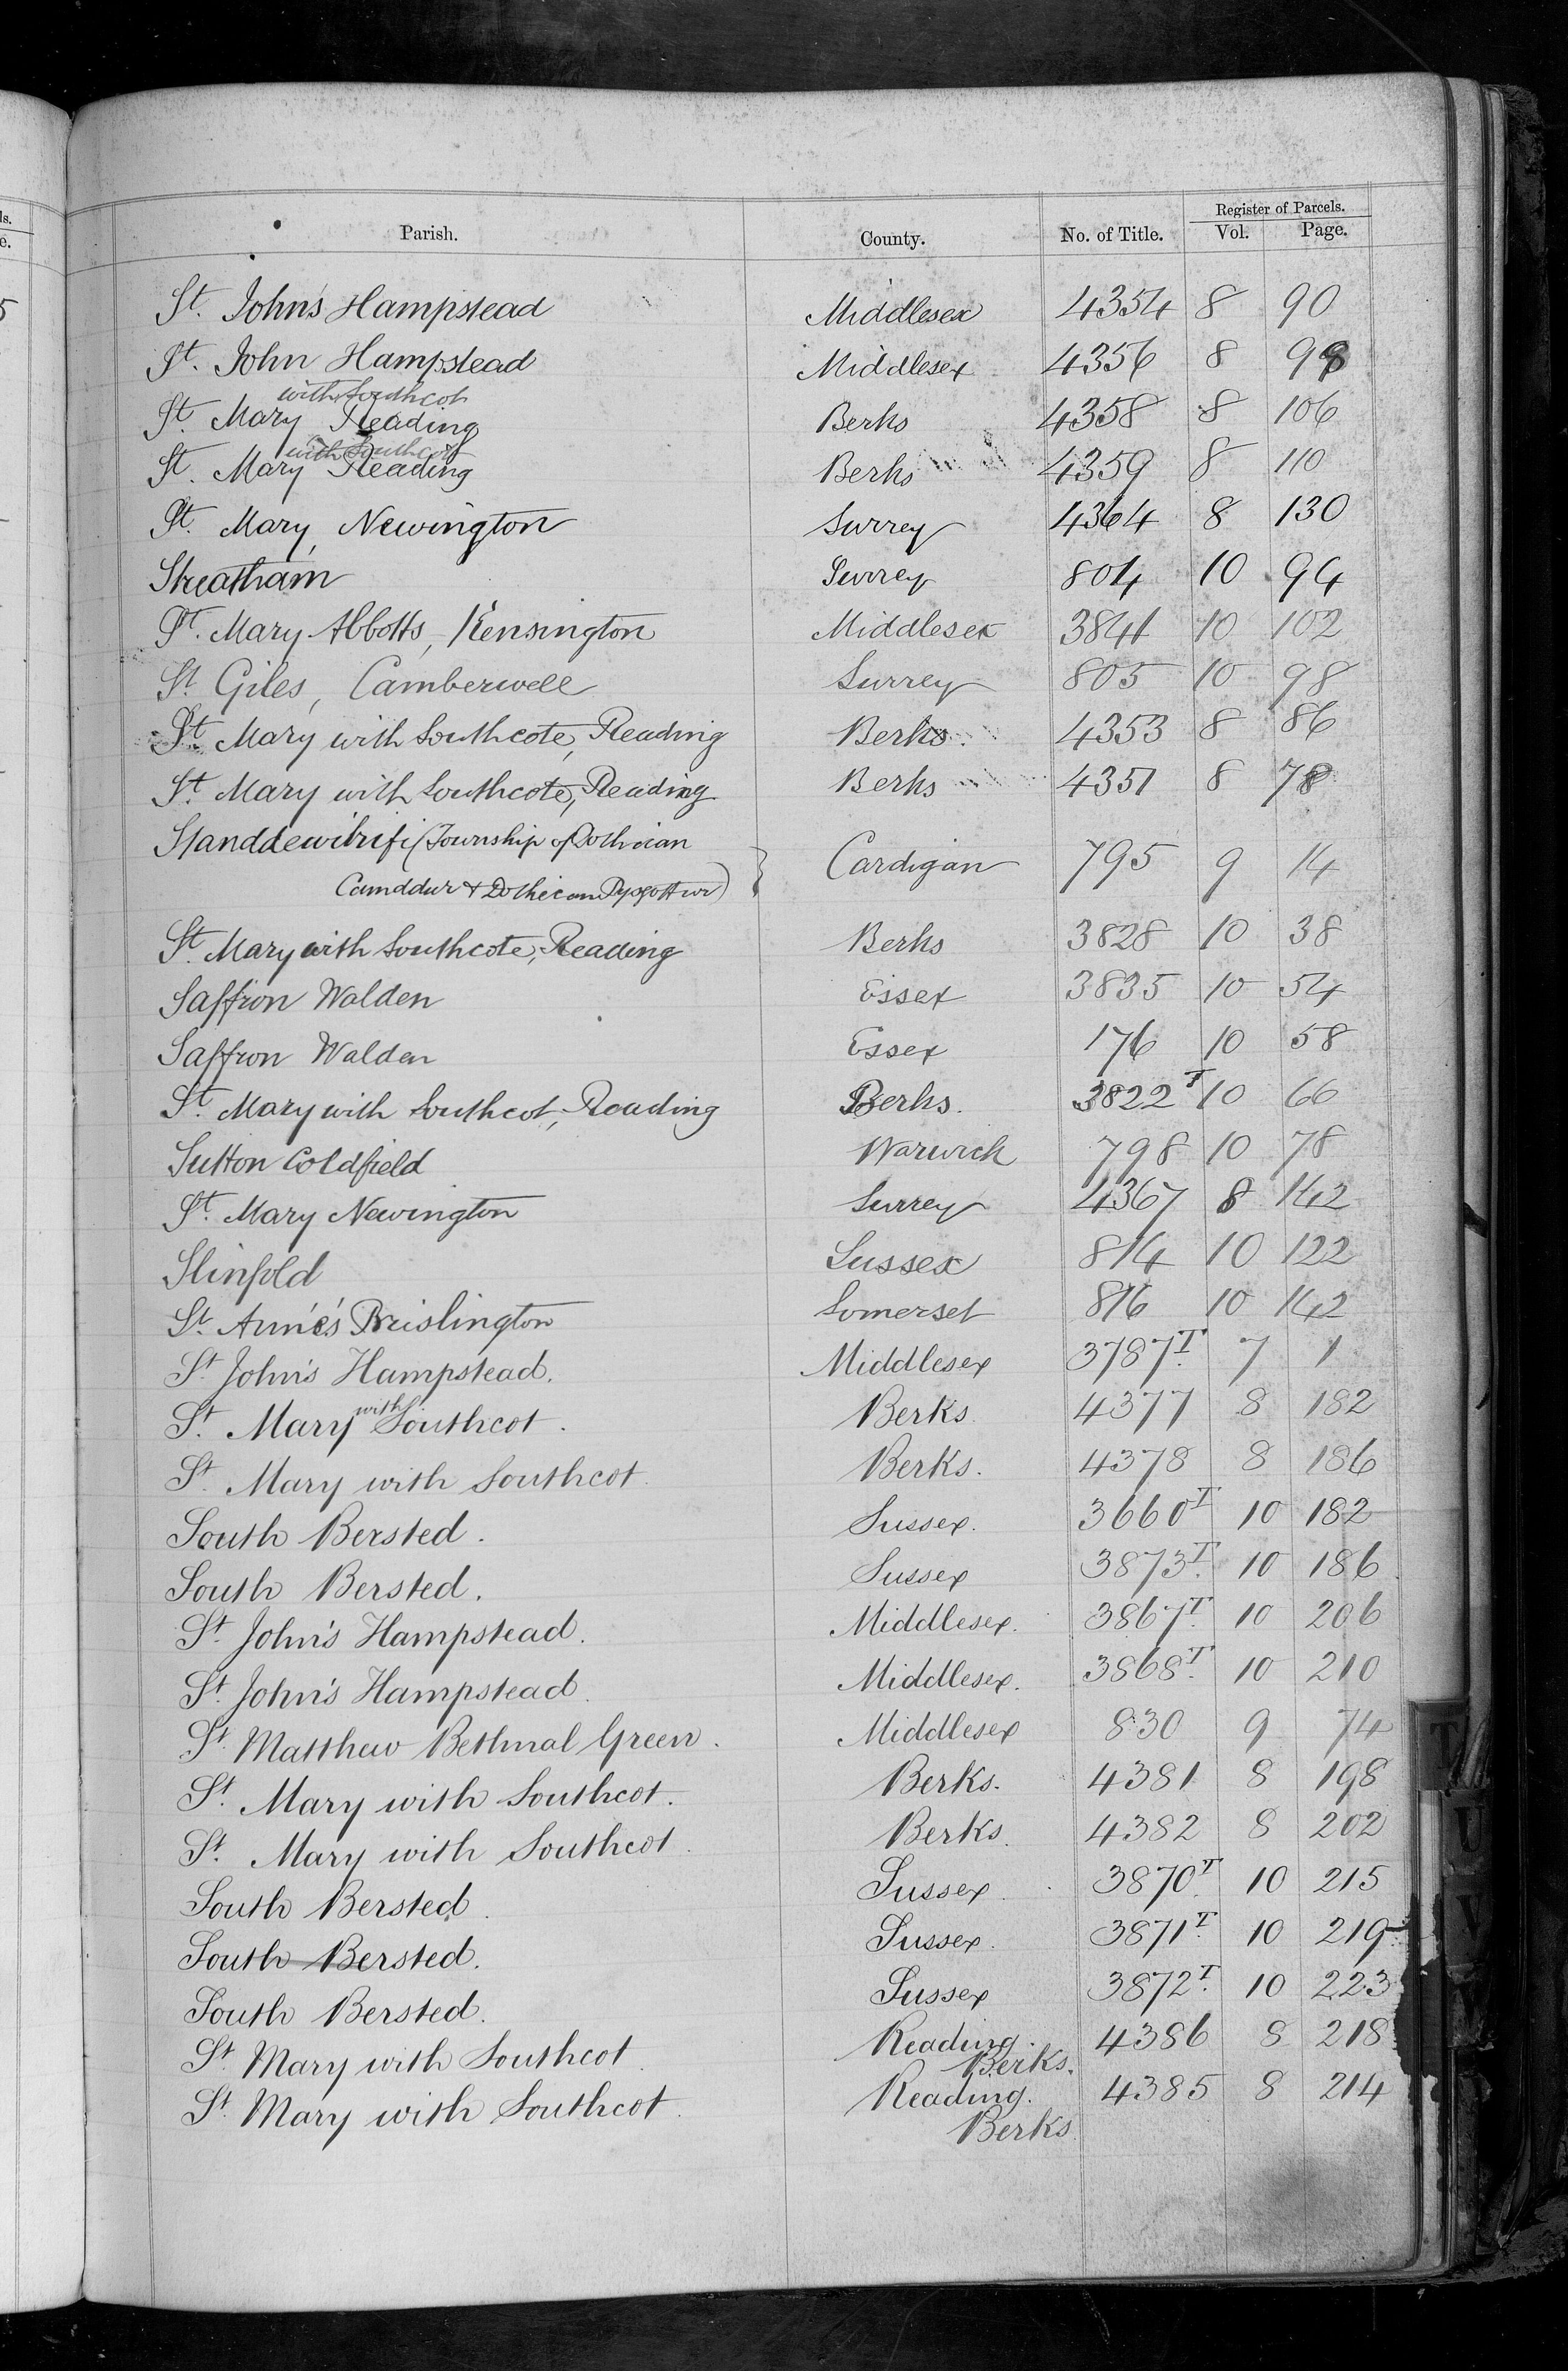 Register of Parcels.
Parish. County. No. of Title. Vol. Page.
St. John's Hampstead Middlesex 4354 8 90
St. John Hampstead Middlesex 4356 8 98
with Southcot
St. Mary Reading Berks 4358 8 106
with Southcot
St. Mary Reading Berks 4359 8 110
St. Mary, Newington Surrey 4364 8 130
Streatham Surrey 804 10 94
St. Mary Abbotts, Kensington Middlesex 3841 10 102
St. Giles, Camberwell Surrey 805 10 98
St. Mary with Southcote, Reading Berks. 4353 8 86
St. Mary with Southcote, Reading Berks 4351 8 78
(Township of Cardigan 795 9 14
Camddur &
St. Mary with Southcote, Reading Berks 3828 10 38
Saffron Walden Essex 3835 10 54
Saffron Walden Essex 176 10 58
St. Mary with Southcot, Reading Berks. 3822T 10 66
Sutton Coldfield Warwick 798 10 78
St. Mary Newington Surrey 4367 8 142
Slinfold Sussex 814 10 122
St. Anne's Brislington Somerset 816 10 142
St. John's Hampstead. Middlesex 3787T. 7 1
St. Mary with Southcot. Berks. 4377 8 182
St. Mary with Southcot. Berks. 4378 8 186
South Bersted. Sussex. 3660T 10 182
South Bersted. Sussex 3873T. 10 186
St. John's Hampstead. Middlesex. 3867T. 10 206
St. John's Hampstead. Middlesex. 3868T. 10 210
St. Matthew Bethnal Green. Middlesex 830 9 74
St. Mary with Southcot. Berks. 4381 8 198
St. Mary with Southcot. Berks. 4382 8 202
South Bersted. Sussex. 3870T. 10 215
South Bersted. Sussex. 3871T. 10 219
South Bersted. Sussex 3872T. 10 223
St. Mary with Southcot. Reading. 4386 8 218
Berks.
St. Mary with Southcot. Reading. 4385 8 214
Berks.
T
U
V
W